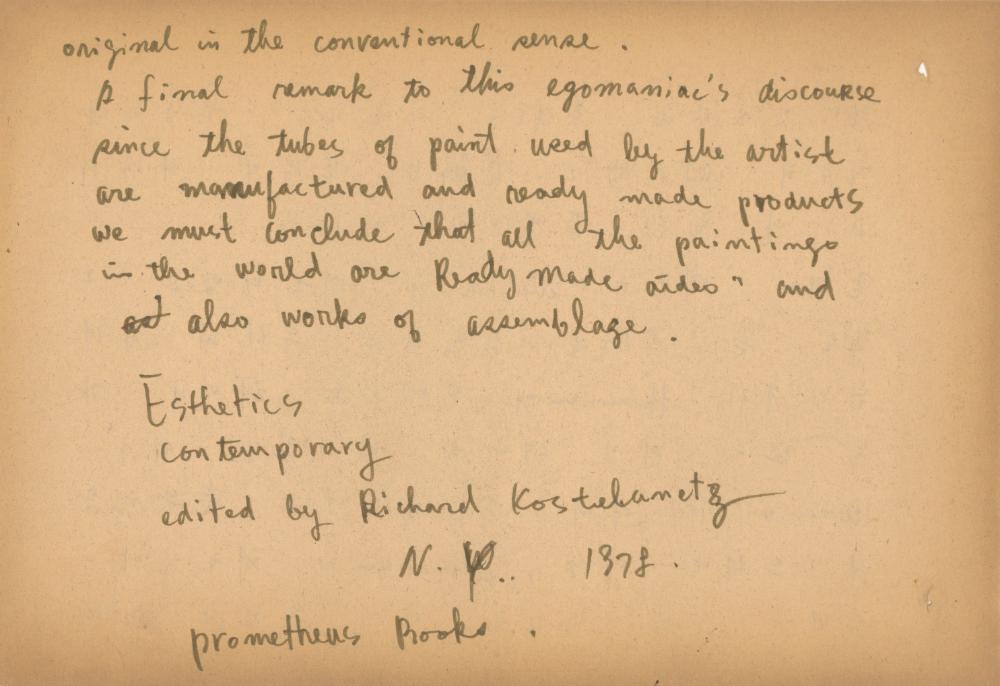 original in the conventional sense .
A final remark to this egomaniac's discourse
since the tubes of paint used by the artist
are manufactured and ready made products
we must conclude that all the paintings
in the world are Ready made aides" and
also works of assemblage .
Esthetics
contemporary
edited by Richard Kostelanetz
N. Y.. 1978 .
prometheus Books .